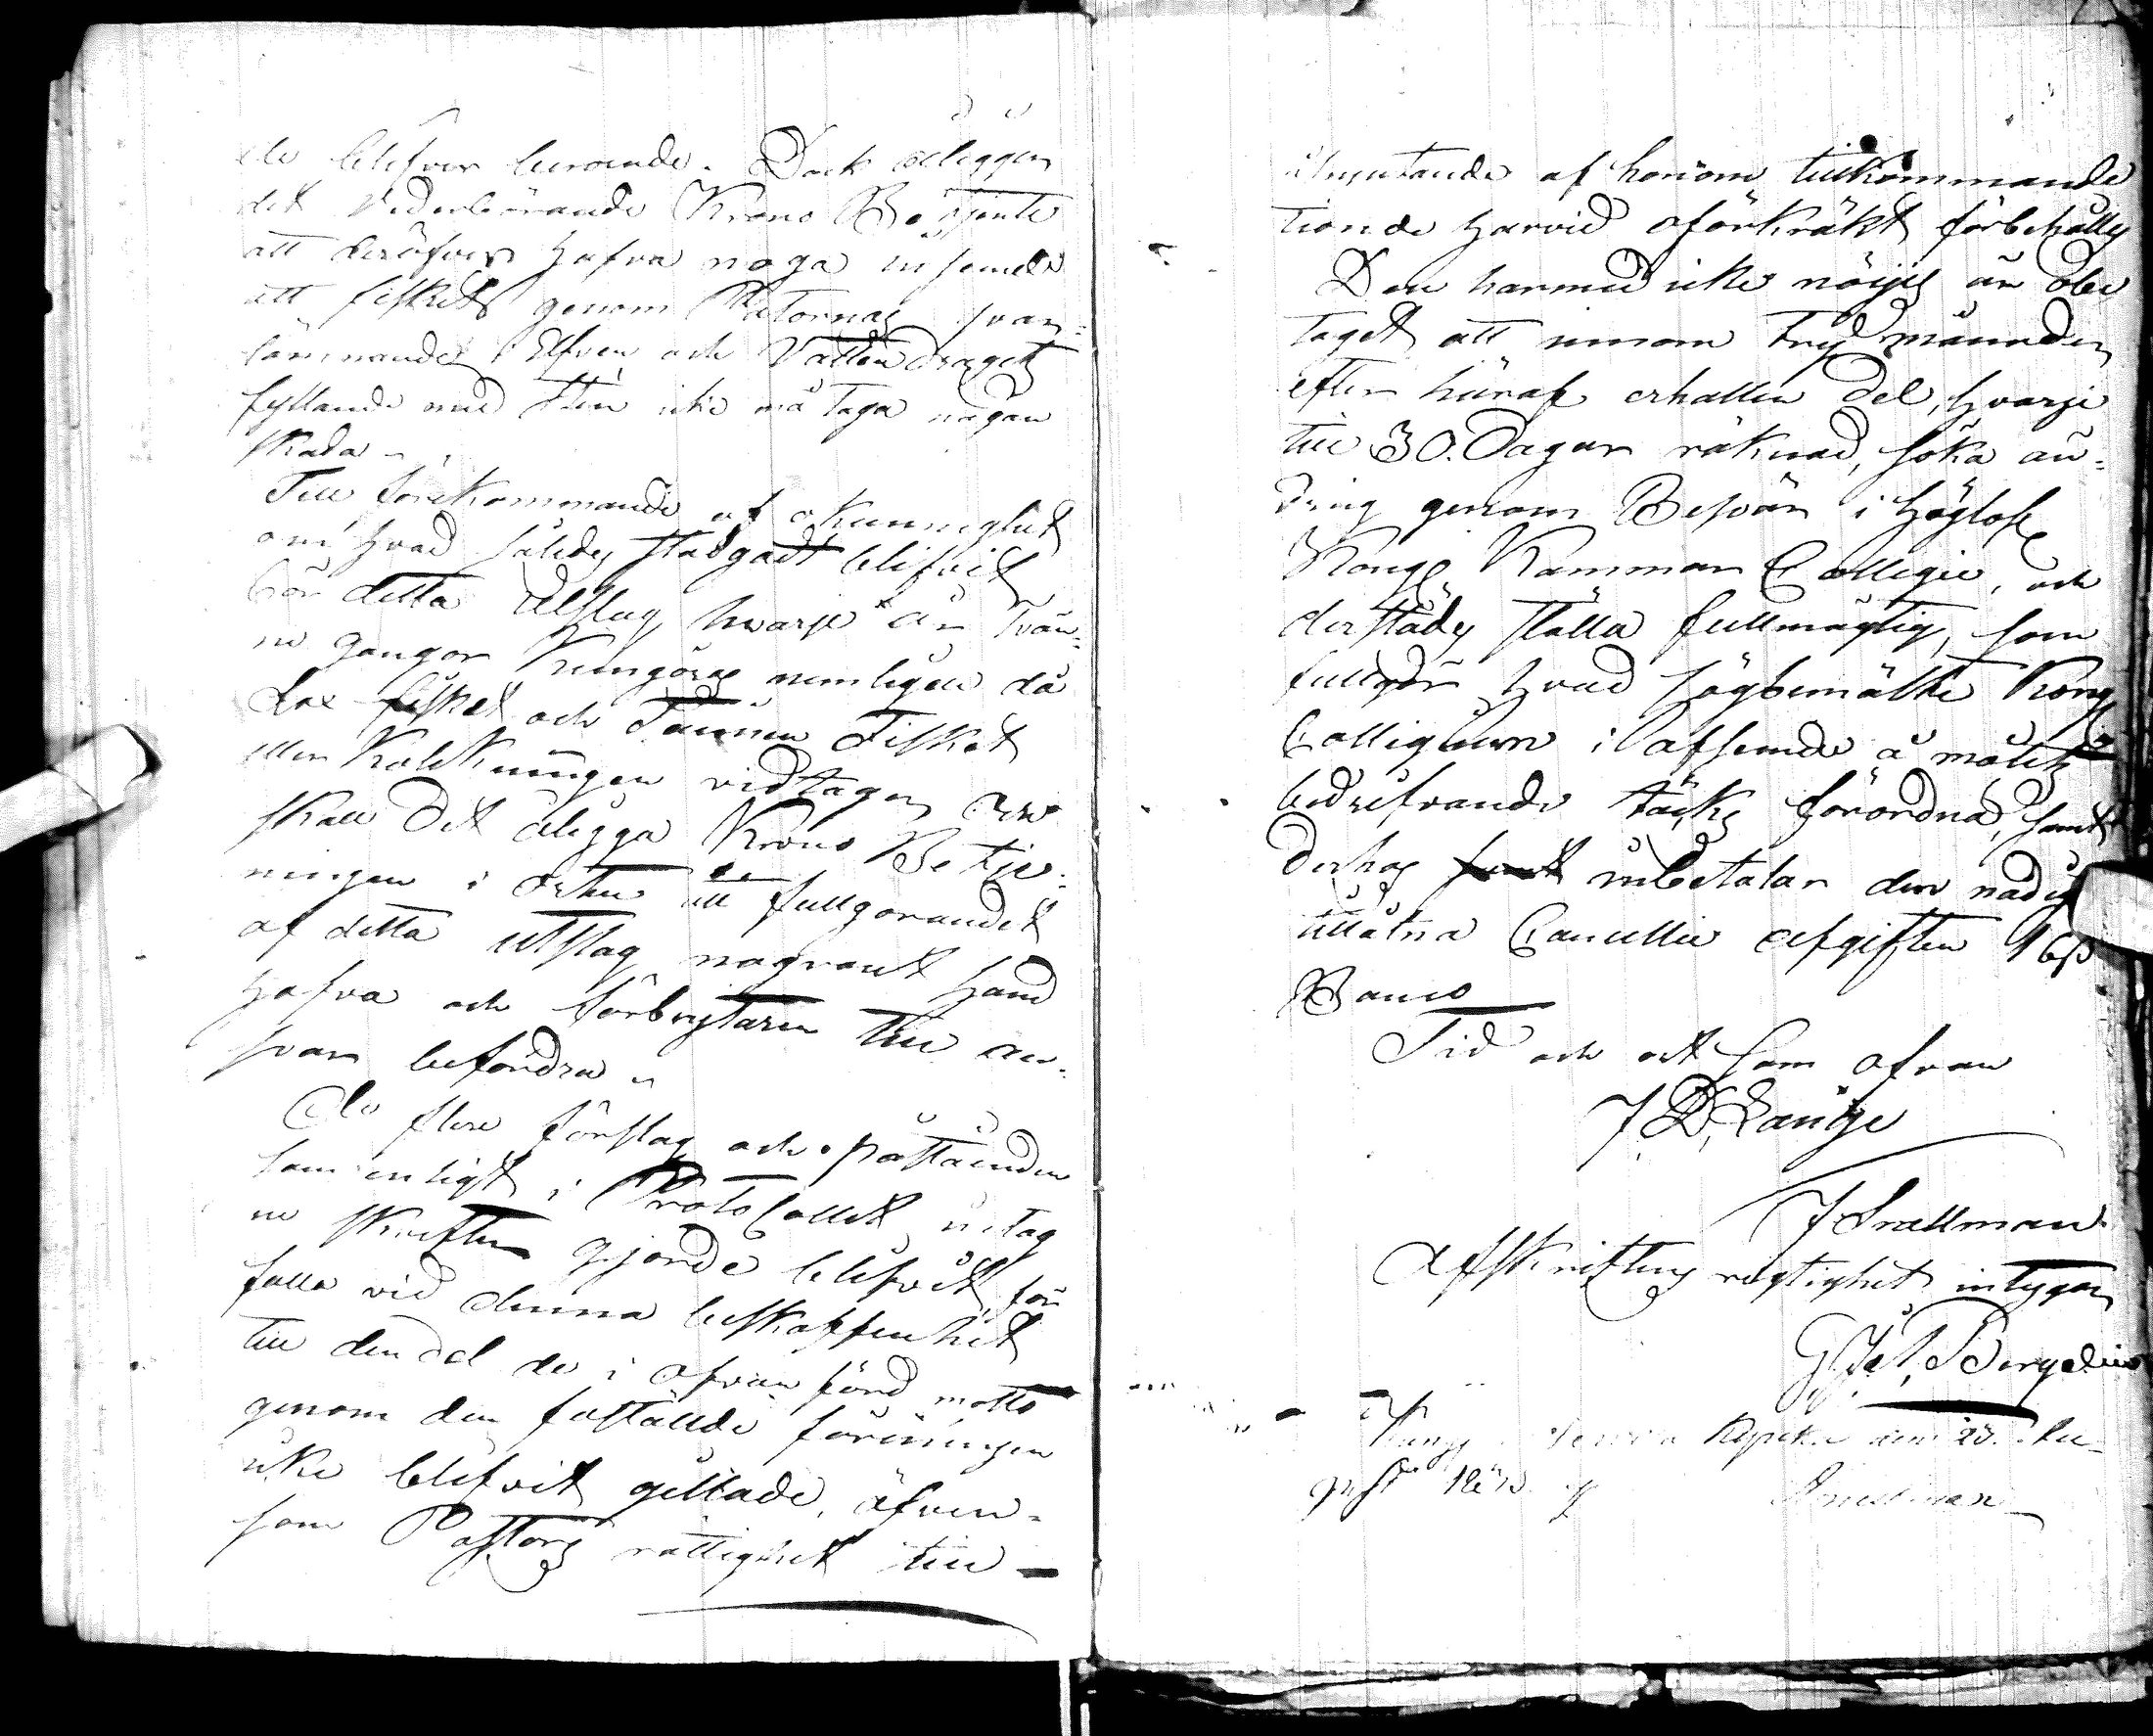 de blifver beroende. Dock åligger
det Vederbörande Krono Betjente
att deröfver hafva noga inseende
att fisket genom Patornas qvar=
lämnande i Elfven och Vattendragets
fyllande med sten icke må taga någon
skada.
Till förekommande af okunnighet
om hvad således stadgadt blifvit
bör detta Utslag hvarje år Tvän=
ne gångor kungöras nemligen då
Lax fisket och Fisket
eller Kolkningen vidtager, och
skall Det åligga Krono Betje=
ningen i Orten att fullgörandet
af detta utslag nogrant hand
hafva och förbrytaren till an=
svar befordra.
De flere förslag och påståenden
som enligt i Protocollet intag
ne skrifter gjorde blifvit, för
falla vid denna beskaffenhet
till den del de i ofvan förd motto
genom den faställde föreningen
icke blifvit gillade, äfven=
som Pastors rättighet till
åtnjutande af honom tillkommande
tionde harvid oförkräkt förbehålles
Den harmed icke nöijes är obe
taget att innom Try månader
efter häraf erhallen Del, hvarje
till 30. Dagar räknad, söka än=
dring genom Besvär i höglofl
Kongl Kammar Collegie, och
derstädes ställa fullmägtig, som
fullgör hvad högbemälte Kongl
Collegium i afseende å målets
bedrifvande täckes förordna, samt
derhos inbetalar den nådigt
tillåtna Cancellie afgiften 16 ß
Banco
Tid och ort som ofvan
J D, Lange
J Snellman
Afskriftens rigtighet intygar
Bergelin
den 23.